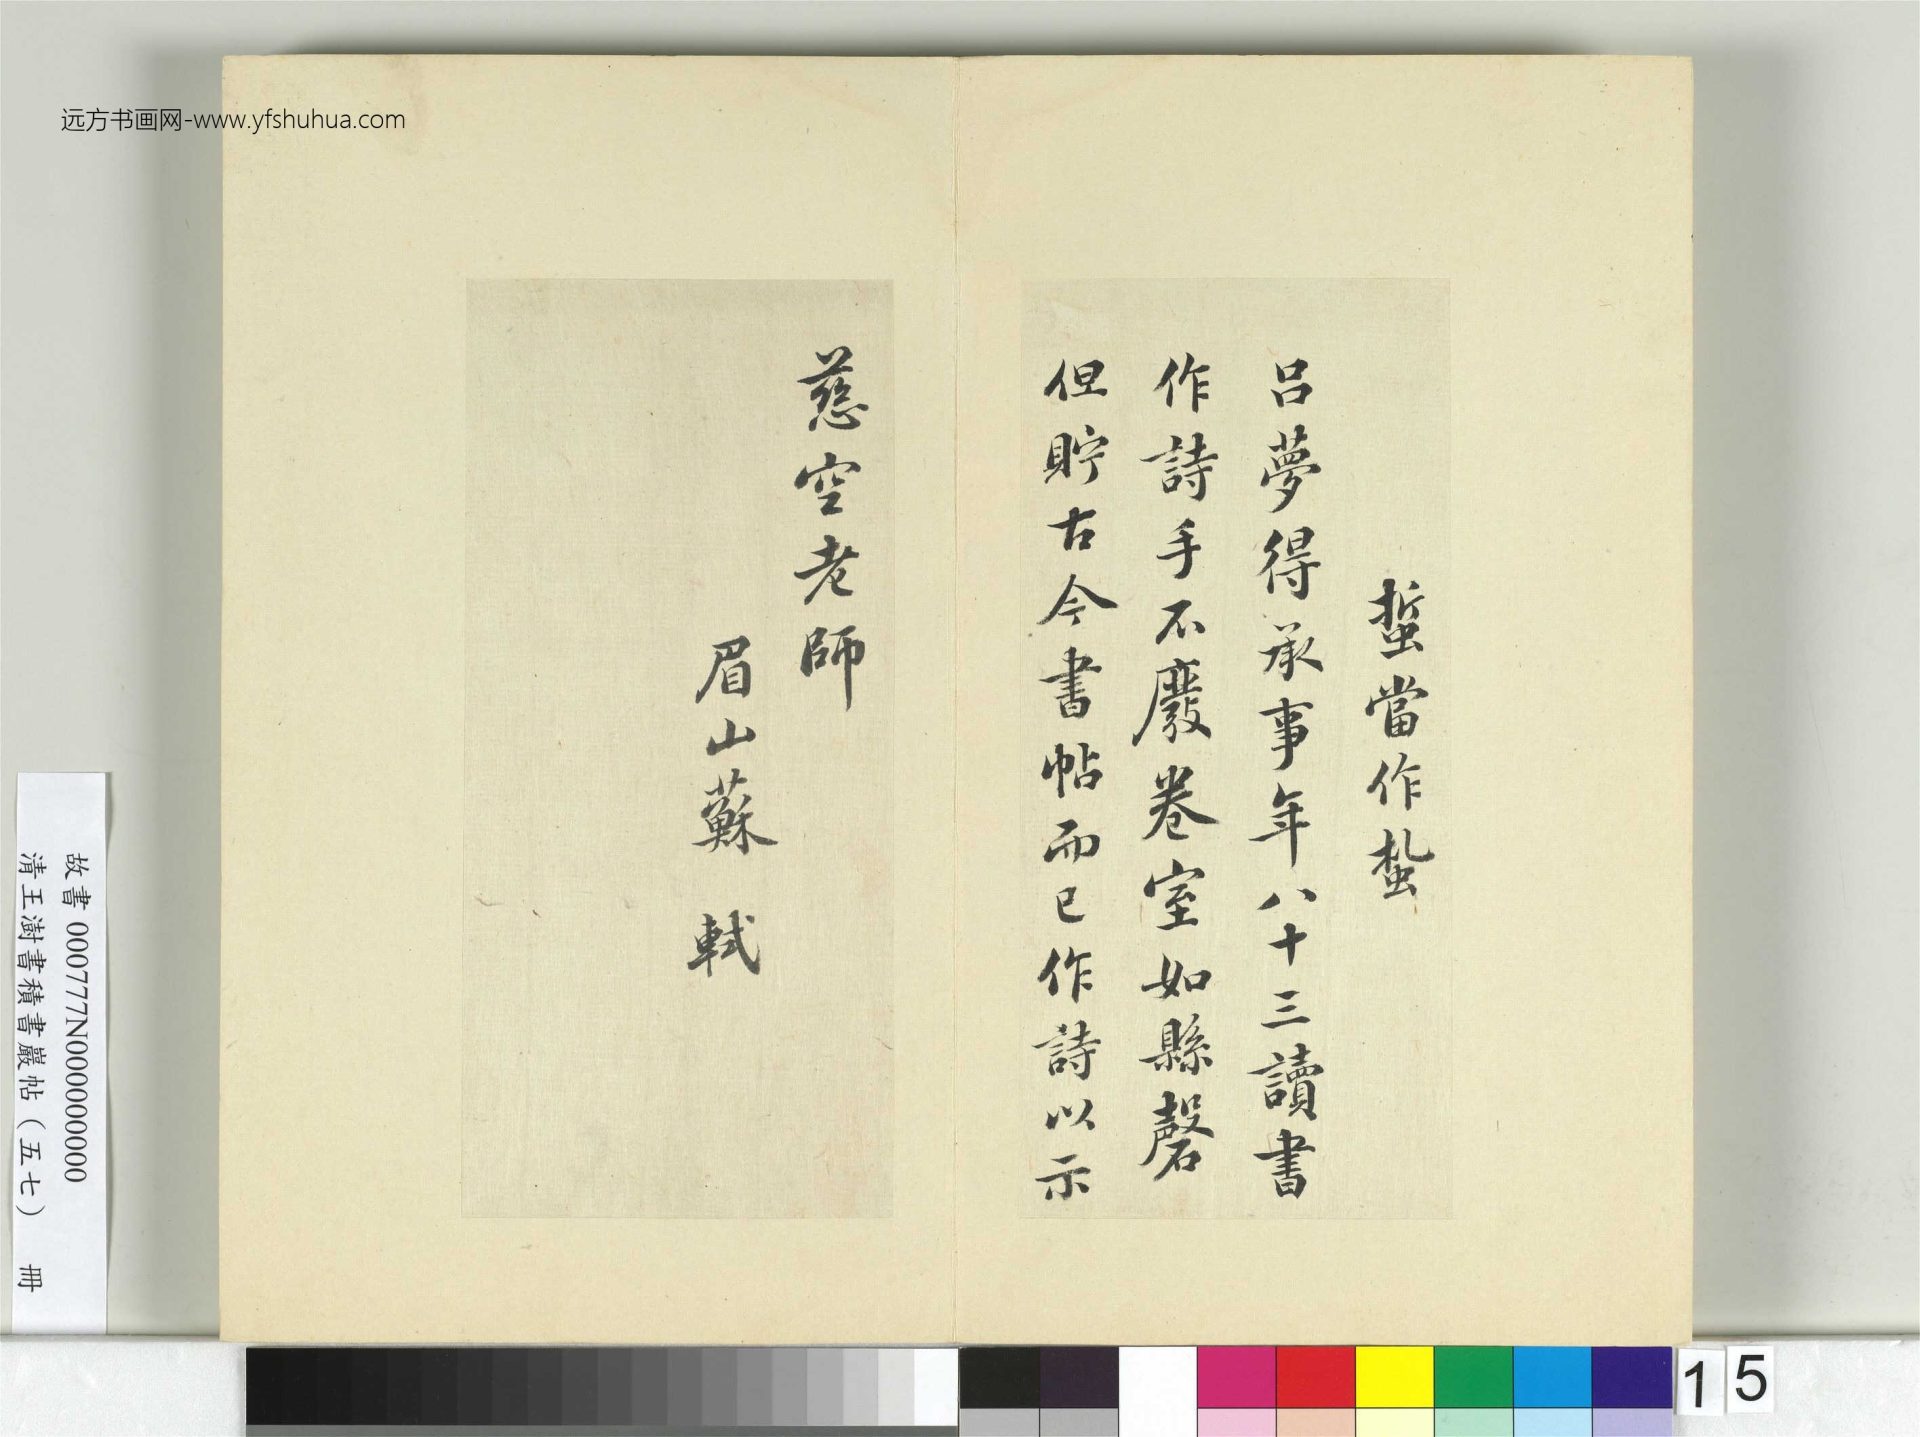 远方书画网-www.yfshuhua.com
蜇當作蚻
吕夢得承事年八十三讀書
作詩手不廢卷室如縣磬
但貯古今書帖而已作詩以示
慈空老師
眉山蘇軾
故書000777N000000000
清王澍書積書巖帖(五七) 冊
15